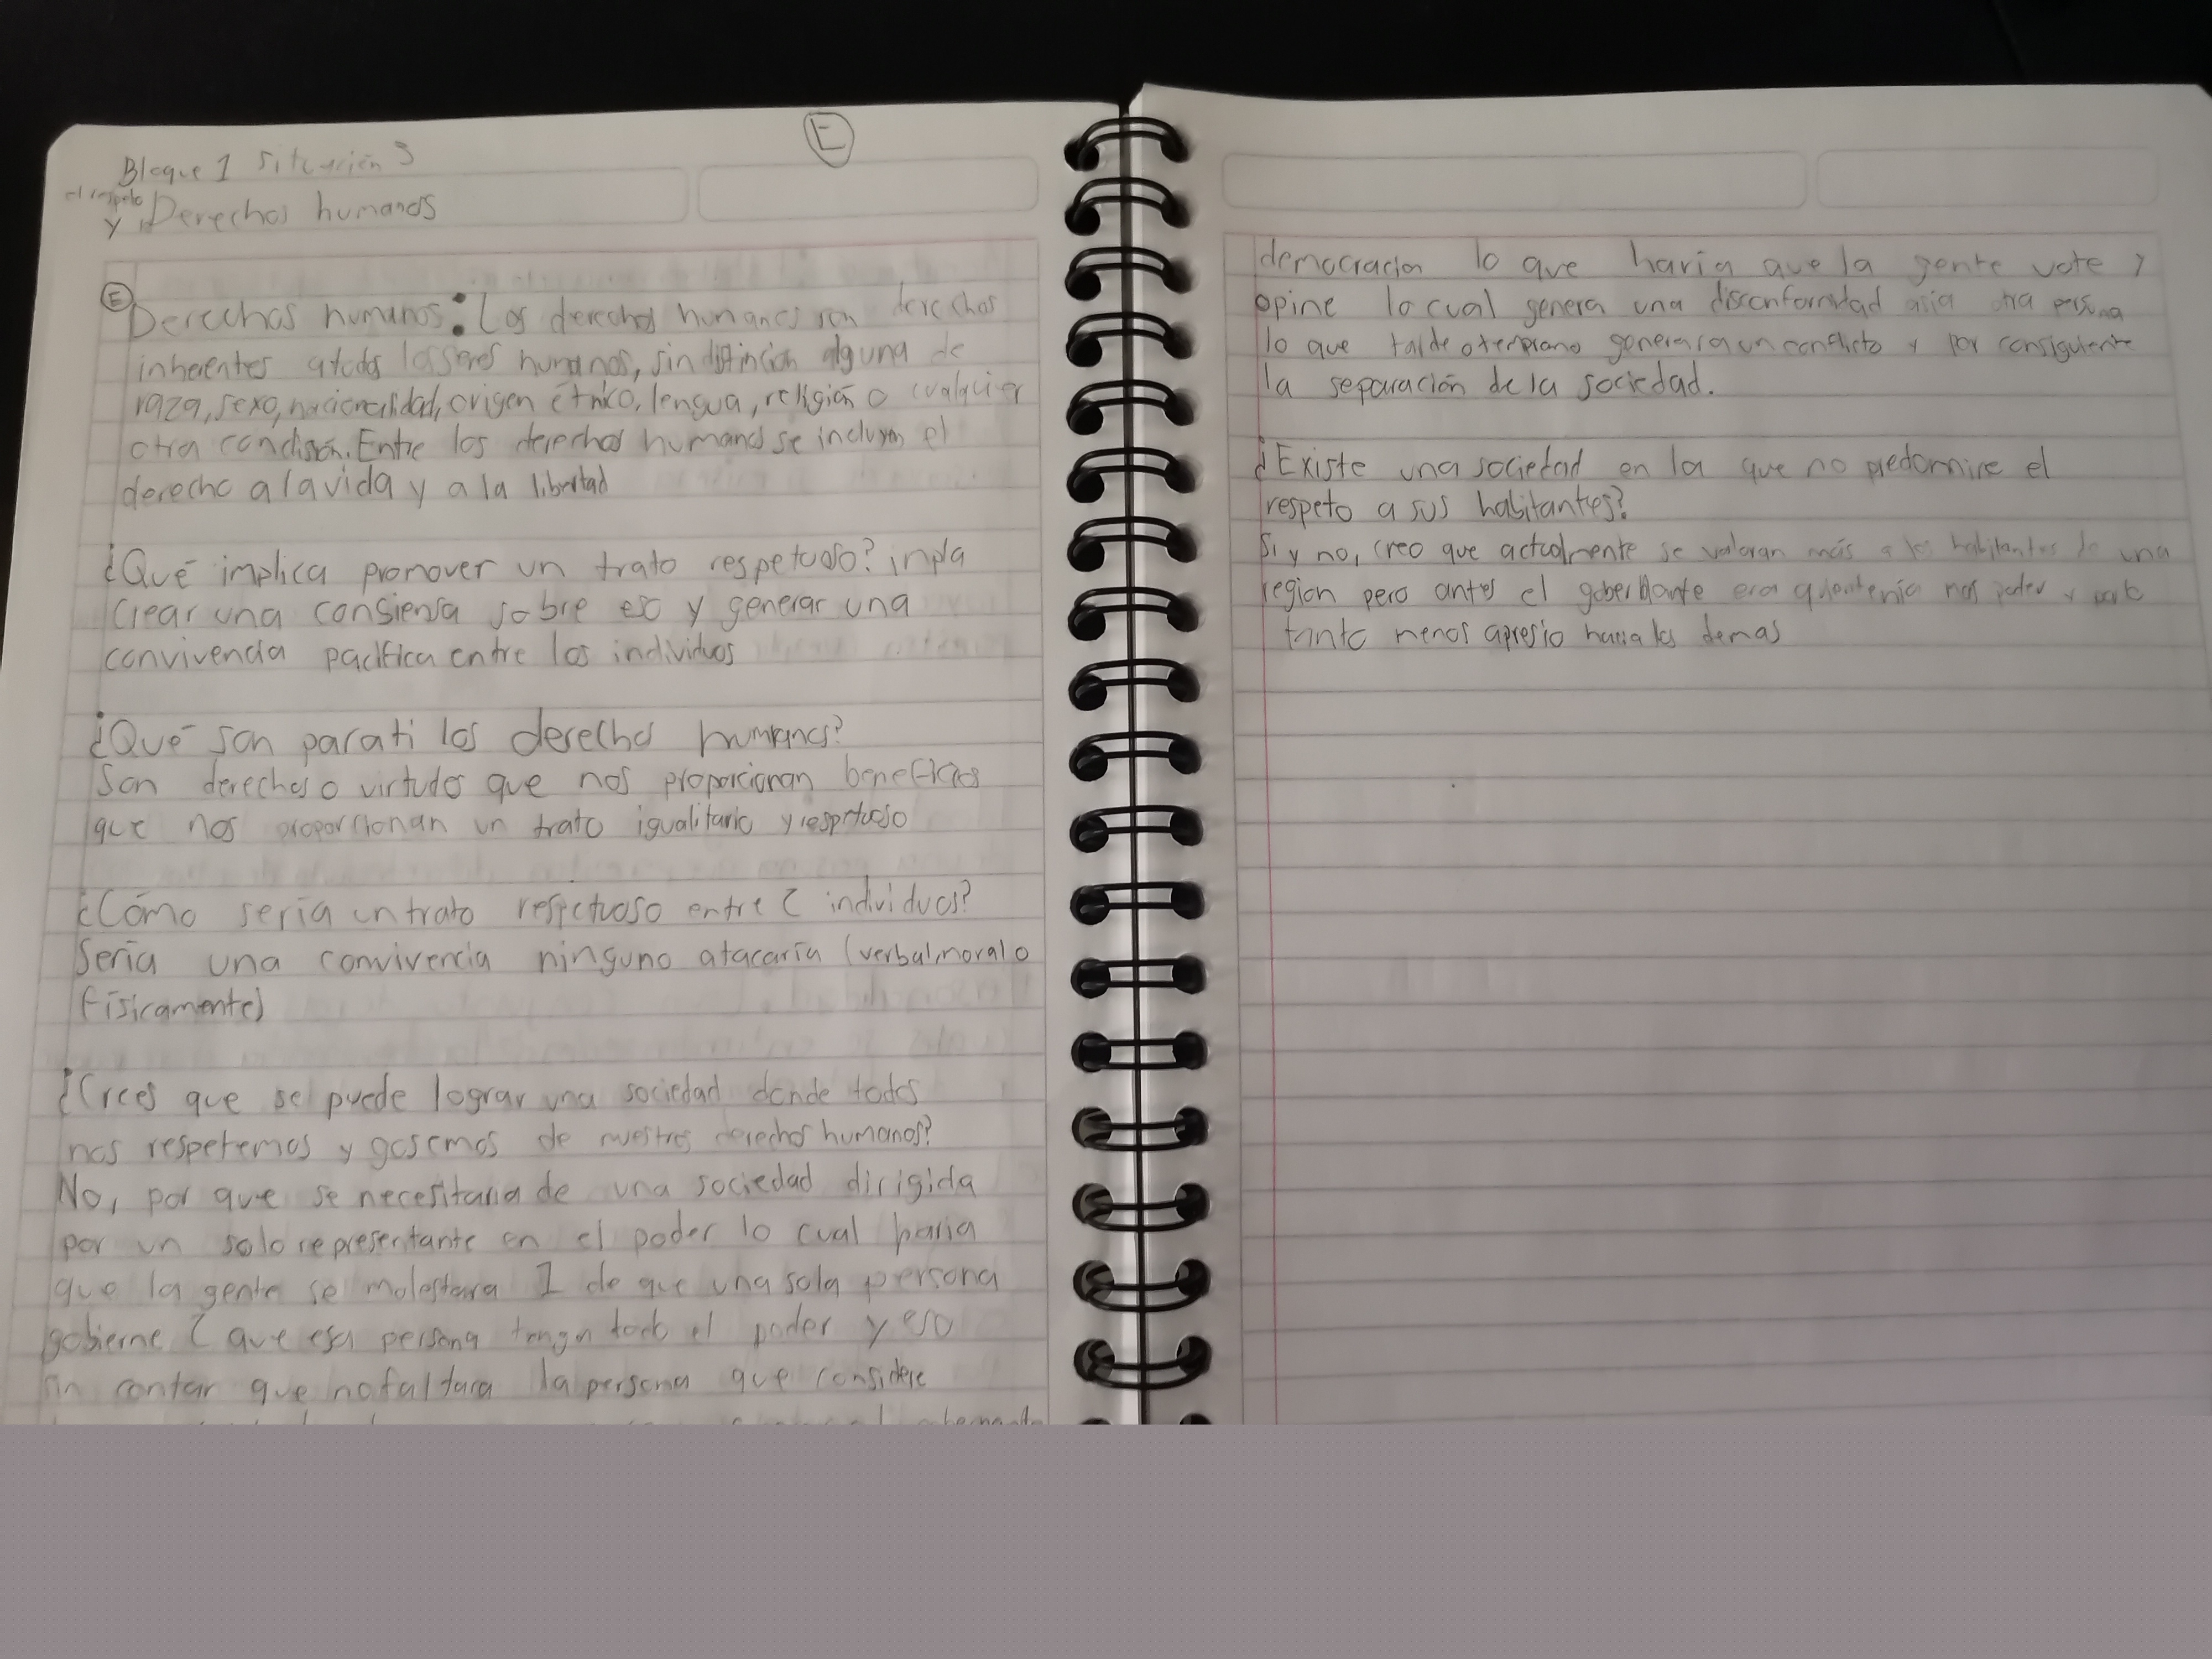 E
Bloque 1 Situación 3
el respeto
y Derechos humanos
E
Derechos humanos: Los derechos humanos son derechos
inherentes a todos los seres humanos, sin distinción alguna de
raza, sexo, nacionalidad, origen étnico, lengua, religión o cualquier
otra condisión. Entre los derechos humanos se incluyen el
derecho a la vida y a la libertad
¿Qué implica promover un trato respetuoso?
Crear una consiensa sobre eso y generar una
convivencia pacífica entre los individuos
¿Qué son para ti los derechos humanos?
Son derechos o virtudes que nos proporcionan beneficios
que nos proporcionan un trato igualitario y respetuoso
¿Cómo sería un trato respectuoso entre 2 individuos?
Sería una convivencia ninguno atacaría (verbal, moral o
físicamente)
¿Crees que se puede lograr una sociedad donde todos
nos respetemos y gosemos de nuestros derechos humanos?
No, por que se necesitaria de una sociedad dirigida
por un solo representante en el poder lo cual haria
que la gente se molestara 1 de que una sola persona
gobierne 2 que esa persona tenga todo el poder y eso
sin contar que no faltara la persona que considere
democracia lo que haria que la gente vote y
opine lo cual genera una disconformidad asia otra persona
lo que tarde o temprano generara un conflicto y por consiguiente
la separación de la sociedad.
¿Existe una sociedad en la que no predomine el
respeto a sus habitantes?
Si y no, creo que actualmente se valoran más a los habitantes de una
region pero antes el gobernante era quien tenía mas poder y
tanto menos apresio hacia los demas